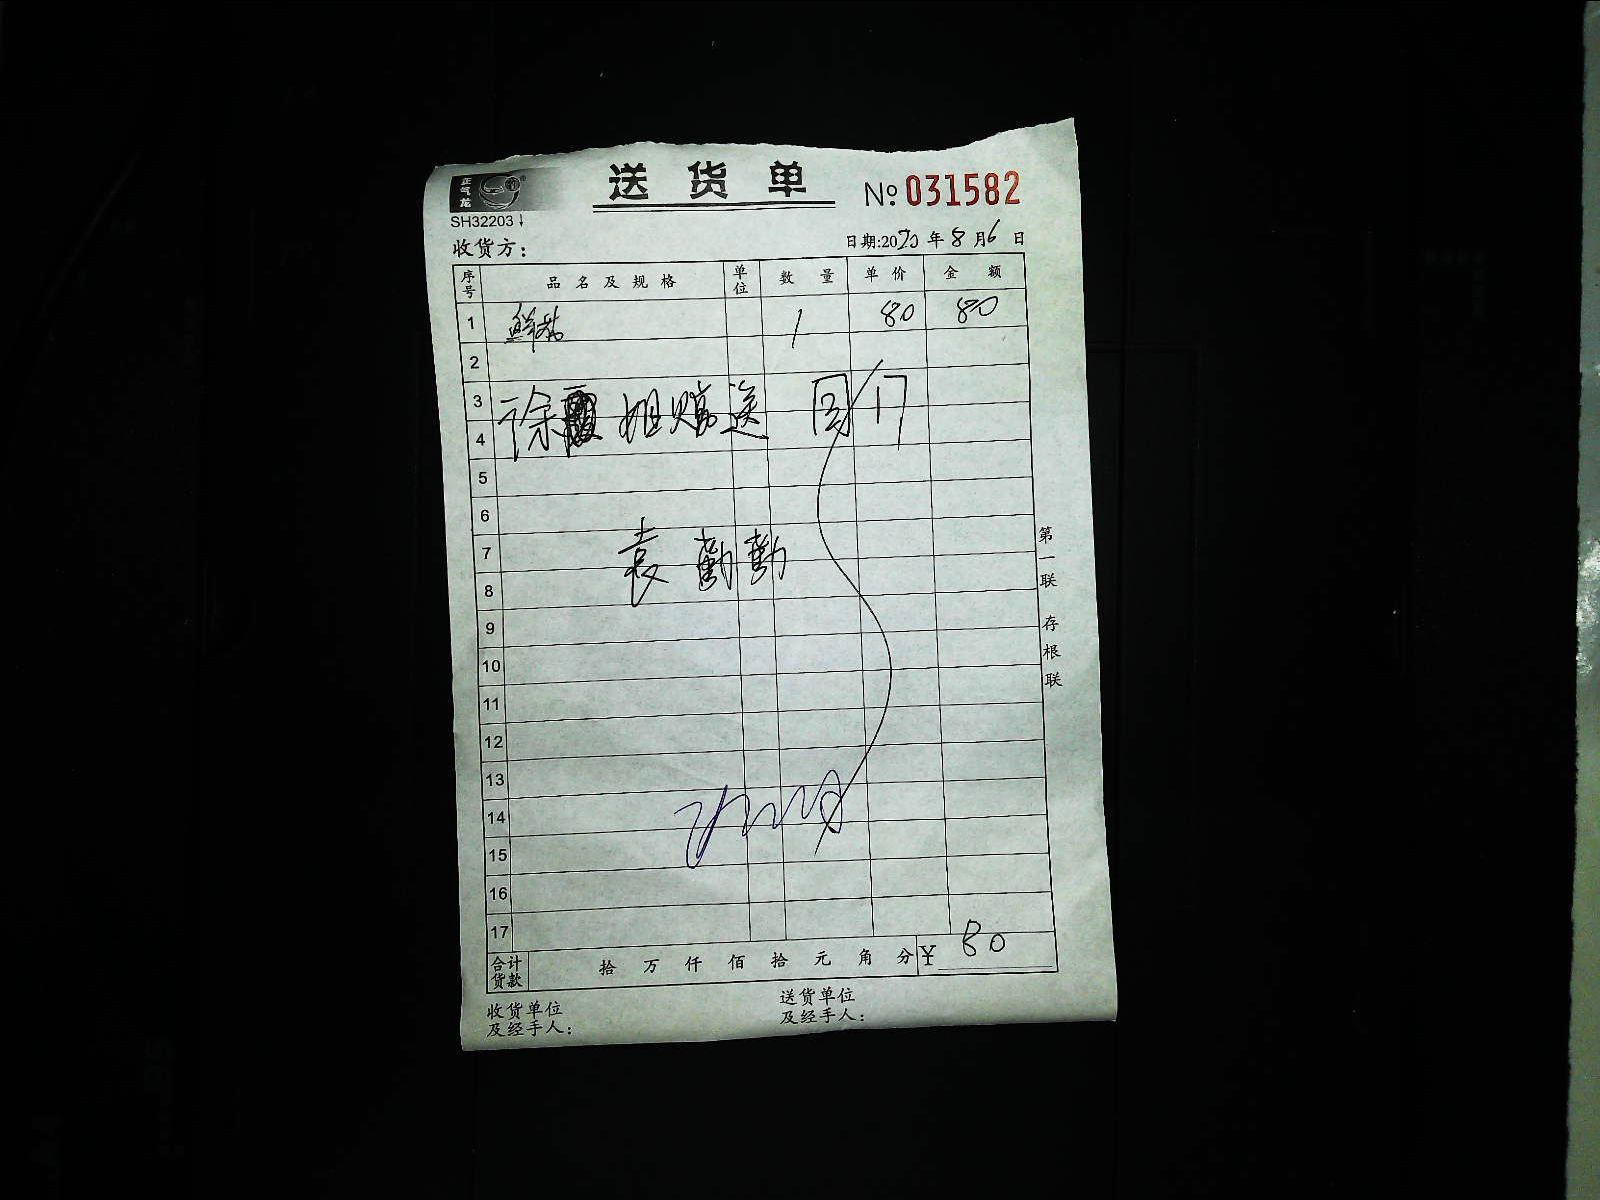 正气龙
送货单
№ 031582
SH32203↓
收货方:
日期:2020年8月6日
序号 品名及规格 单位 数量 单价 金额
1 鲜花 1 80 80
2
3
徐霞姐赠送
4
5
6
7
袁勤勤
8
9
10
11
12
13
14
15
16
17
合计货款 拾 万 仟 佰 拾 元 角 分 ¥ 80
收货单位
及经手人:
送货单位
及经手人:
第一联 存根联